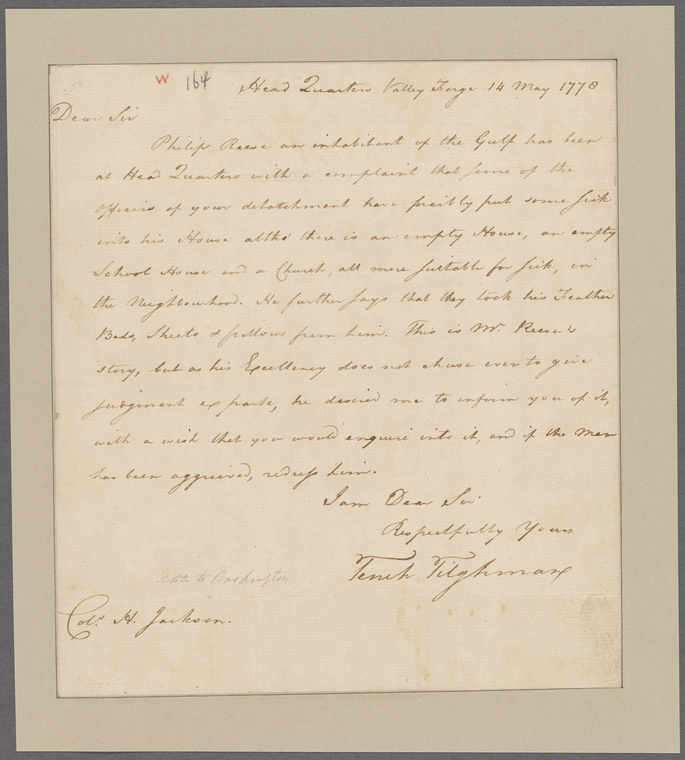 W 164
Head Quarters Valley Forge 14 May 1778
Dear Sir
Philip Reese an inhabitant of the Gulf has been
at Head Quarters with a complaint that some of the
officers of your detatchment have forcibly put some sick
into his House altho' there is an empty House, an empty
School House and a Church, all more suitable for sick, in
the Neighbourhood. He further says that they took his Feather
Beds, Sheets & pillows from him. This is Mr. Reese's
story, but as his Excellency does not chuse ever to give
judgment ex parte, he desired me to inform you of it,
with a wish that you would enquire into it, and if the Man
has been aggrieved, redress him.
I am Dear Sir
Respectfully Yours
Tench Tilghman
to Washington
Colo. H. Jackson.